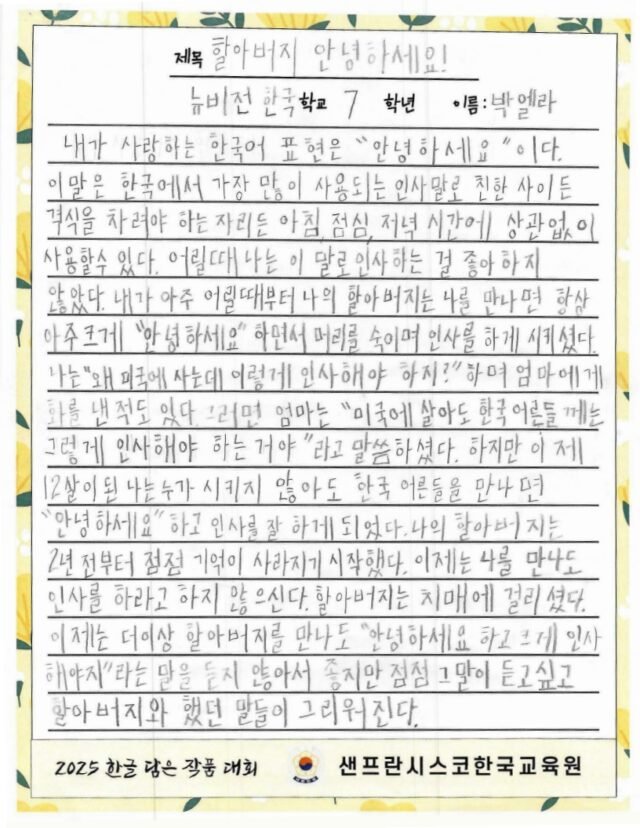 제목 할아버지 안녕하세요!
뉴비전 한국학교 7 학년 이름: 박엘라
내가 사랑하는 한국어 표현은 "안녕하세요"이다.
이말은 한국에서 가장 많이 사용되는 인사말로 친한 사이든
격식을 차려야 하는 자리든 아침, 점심, 저녁 시간에 상관없이
사용할수 있다. 어릴때 나는 이 말로 인사하는 걸 좋아하지
않았다. 내가 아주 어릴때부터 나의 할아버지는 나를 만나면 항상
아주크게 "안녕하세요" 하면서 머리를 숙이며 인사를 하게 시키셨다.
나는 "왜 미국에 사는데 이렇게 인사해야 하지?" 하며 엄마에게
화를 낸적도 있다. 그러면 엄마는 "미국에 살아도 한국 어른들 께는
그렇게 인사해야 하는 거야"라고 말씀하셨다. 하지만 이제
12살이 된 나는 누가 시키지 않아도 한국 어른들을 만나면
"안녕하세요" 하고 인사를 잘 하게 되었다. 나의 할아버지는
2년 전부터 점점 기억이 사라지기 시작했다. 이제는 나를 만나도
인사를 하라고 하지 않으신다. 할아버지는 치매에 걸리셨다.
이제는 더이상 할아버지를 만나도 "안녕하세요 하고 크게 인사
해야지"라는 말을 듣지 않아서 좋지만 점점 그말이 듣고싶고
할아버지와 했던 말들이 그리워진다.
2025 한글 담은 작품 대회 샌프란시스코한국교육원